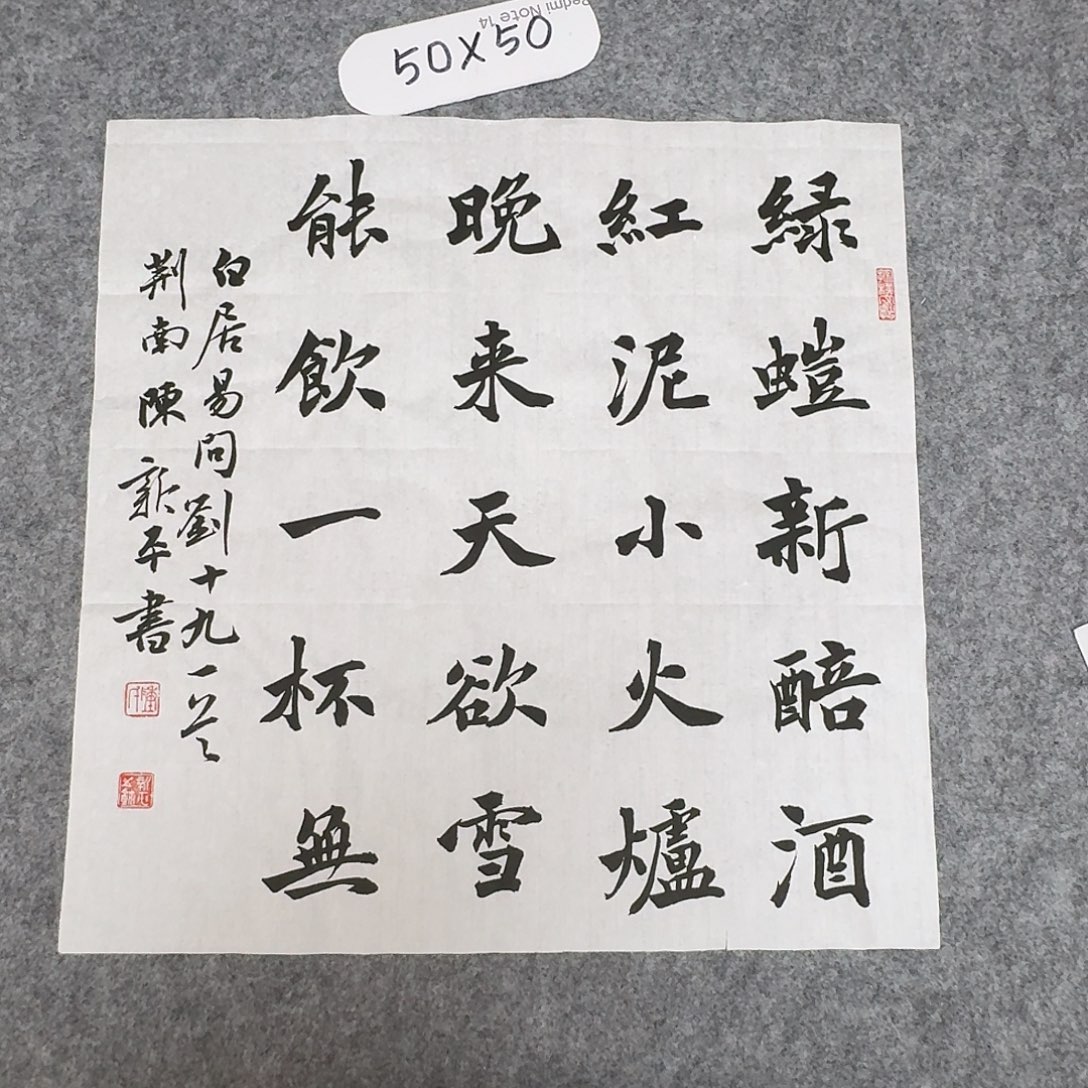 Redmi Note 14
50X50
綠螘新醅酒
紅泥小火爐
晚来天欲雪
能飲一杯無
白居易問劉十九一首
荆南陳新平書